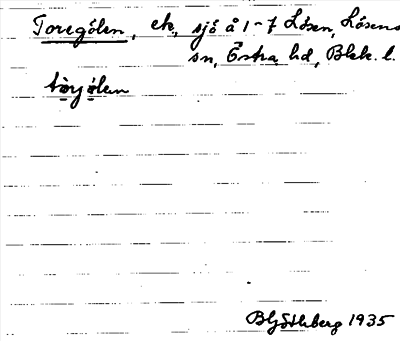 Toregölen, ek., sjö å 1-7 Lösen, Lösens
sn, Östra hd, Blek. l.
BHjöthberg 1935